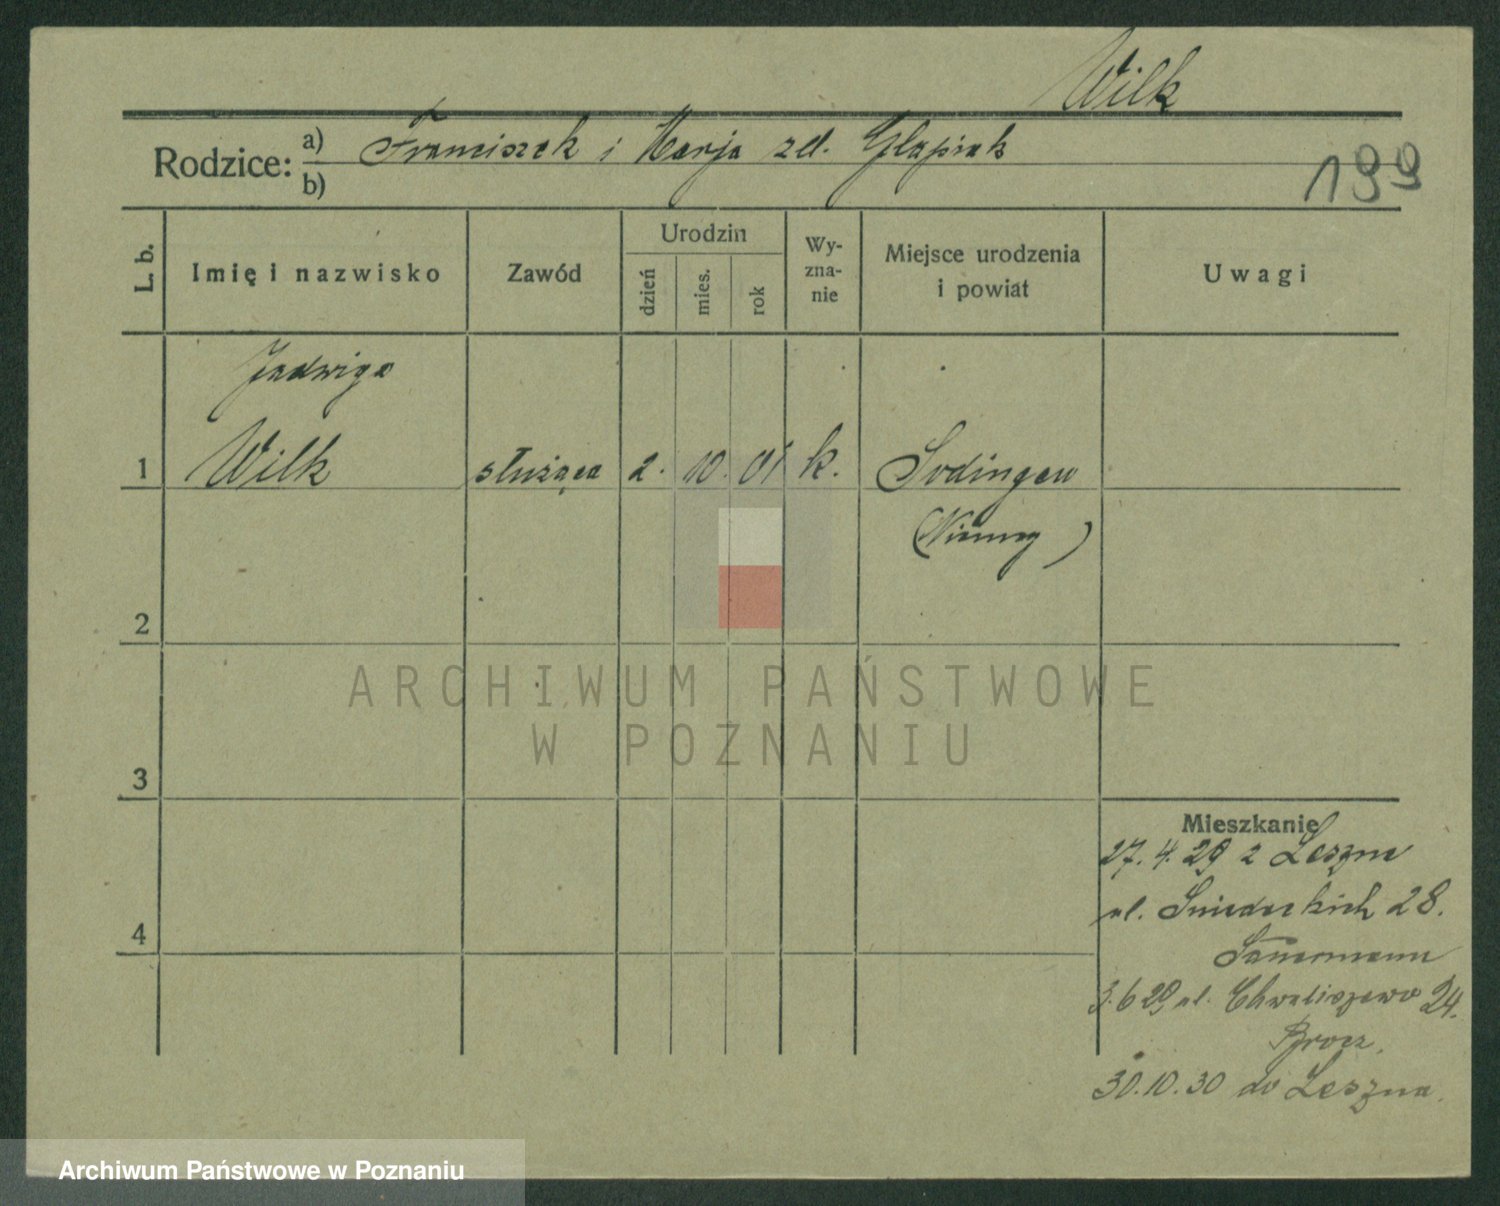 Wilk
Rodzice: a) Franciszek i Marja zd. Glapiak
b)
199
L. b. Imię i nazwisko Zawód Urodzin dzień mies. rok Wy-zna-nie Miejsce urodzenia i powiat Uwagi
Jadwiga
1 Wilk służąca 2. 10. 01 k. Sodingen
(Niemcy)
2
ARCHIWUM PAŃSTWOWE
W POZNANIU
3
Mieszkanie
27.4.29 z Leszna
ul. Śniadeckich 28.
4
3.6 29 ul. Chwaliszewo 24.
30.10.30 do Leszna.
Archiwum Państwowe w Poznaniu